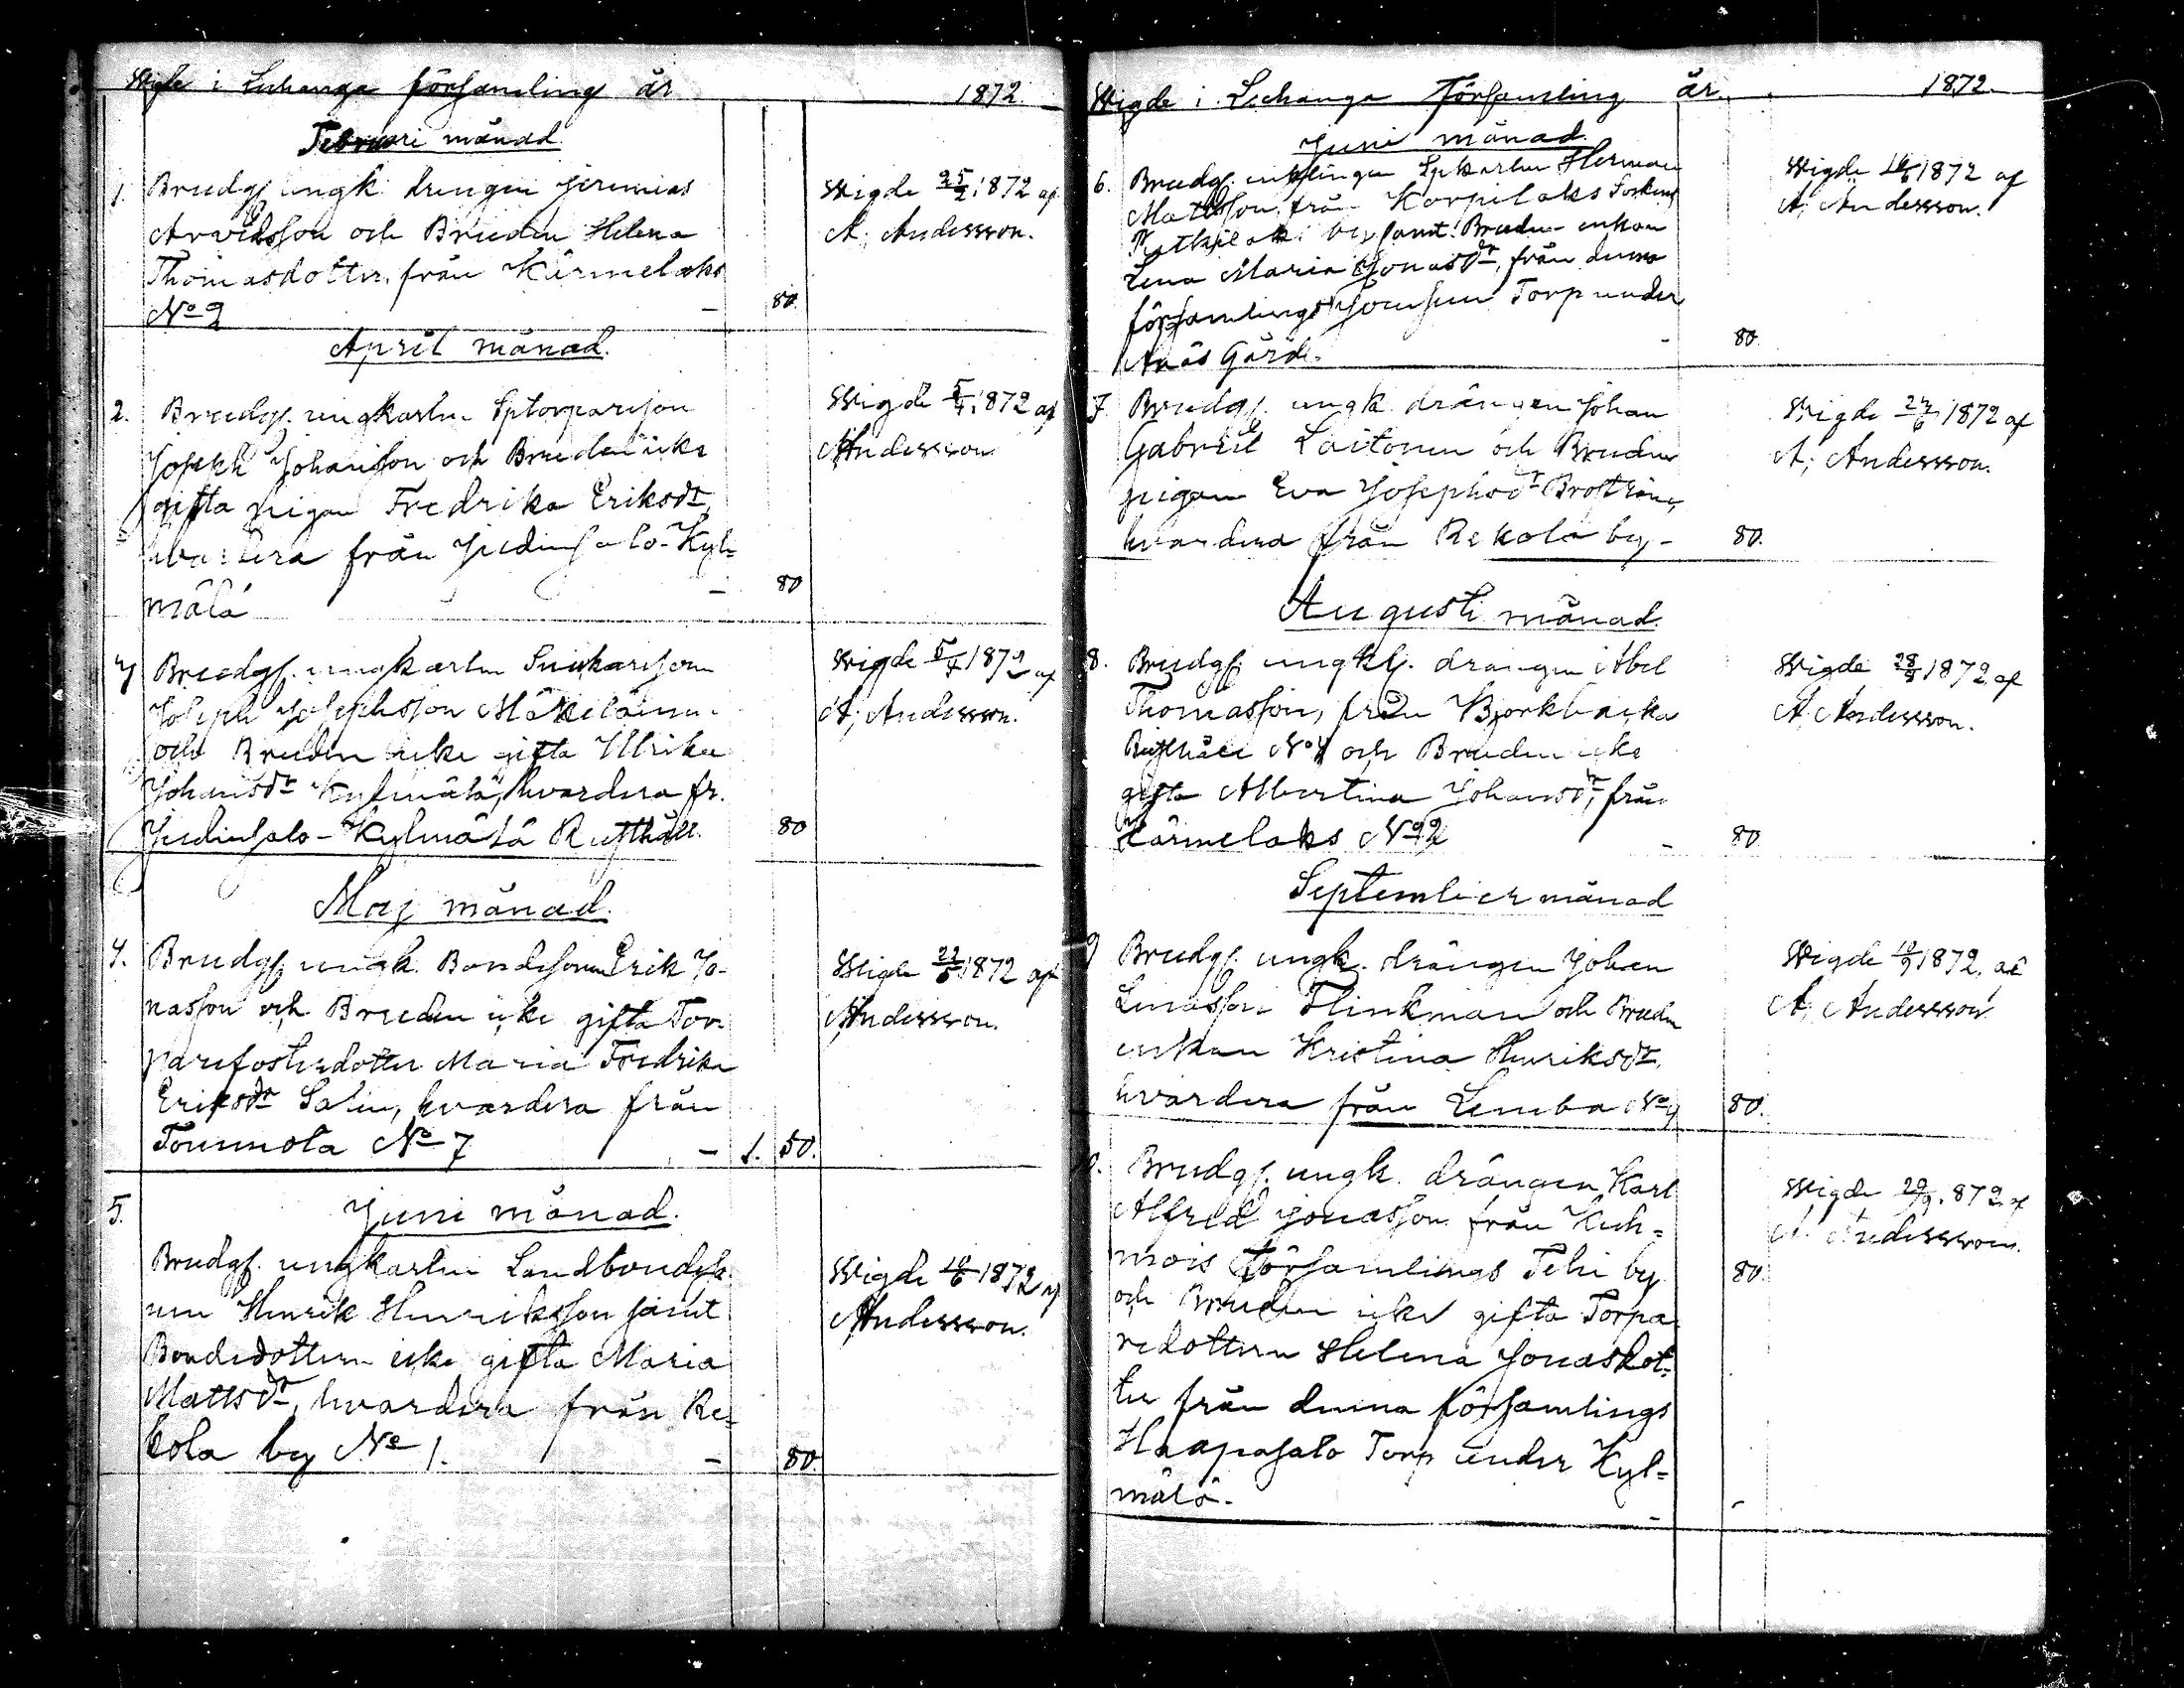 Wigde i Luhanga församling år 1872.
Februari månad.
1. Brudg. ungk. drengen Jeremias
Arvidsson och Bruden Helena
Thomasdotter, från Kärmelaks
No 2 - 80.
Wigde 25/2 1872 af
A. Andersson.
April månad.
2. Brudg. ungkarlen Sptorpareson
Joseph Johansson och Bruden icke
gifta pigan Fredrika Eriksdr,
hvardera från Judinsalo-Kyl-
mälä - 80
Wigde 5/4 1872 af
A. Andersson
3 Brudg. ungkarlen
Joseph Josephsson Mäkeläinen
och Bruden icke gifta Ulrika
Johansdr Kylmälä, hvardera fr.
Judinsalo-Kylmälä Rusthåll. 80
Wigde 5/4 1872 af
A. Andersson.
Maj månad.
4. Brudg. ungk. Bondesonen Erik Jo-
nasson och Bruden icke gifta Tor-
parefosterdotter Maria Fredrika
Eriksdr Salin, hvardera från
Tommola No 7 - 1. 50.
Wigde 22/5 1872 af
A. Andersson.
5. Juni månad.
Brudg. ungkarlen Landbondeso-
nen Henrik Henriksson samt
Bondedottern icke gifta Maria
Mattsdr, hvardera från Re-
kola by No 1. - 80.
Wigde 16/6 1872 af
A. Andersson.
Wigde i Luhanga Församling år. 1872.
Juni månad.
6. Brudg. enklingen Spkarlen Herman
Mattsson, från Korpilaks Sockens
by samt Bruden enkan
Lena Maria Jonasdr, från denna
församlings Torp under
Anäs Gård. - 80.
Wigde 16/6 1872 af
A. Andersson.
7. Brudg. ungk. drängen Johan
Gabriel Laitonen och Bruden
pigan Eva Josephsdr Broström,
hvardera från Rekola by - 80.
Wigde 24/6 1872 af
A. Andersson.
Augusti månad.
8. Brudg. ungk. drängen Abel
Thomasson, från Björkbacka
Rusthåll No 4 och Bruden icke
gifta Albertina Johansdr, från
Kärmelaks No 2 - 80
Wigde 28/8 1872 af
A. Andersson.
September månad
9 Brudg. ungk. drängen Johan
Linasson Flinkman och Bruden
enkan Kristina Henriksdr,
hvardera från Lemba No 9 80.
Wigde 10/9 1872, af
A. Andersson
10. Brudg. ungk. drängen Karl
Alfred Jonasson från Kuh-
mois Församlings Tehi by
och Bruden icke gifta Torpa-
redottern Helena Jonasdot-
ter från denna församlings
Haapasalo Torp under Kyl-
mälä. - 80.
Wigde 29/9 1872 af
A. Andersson.